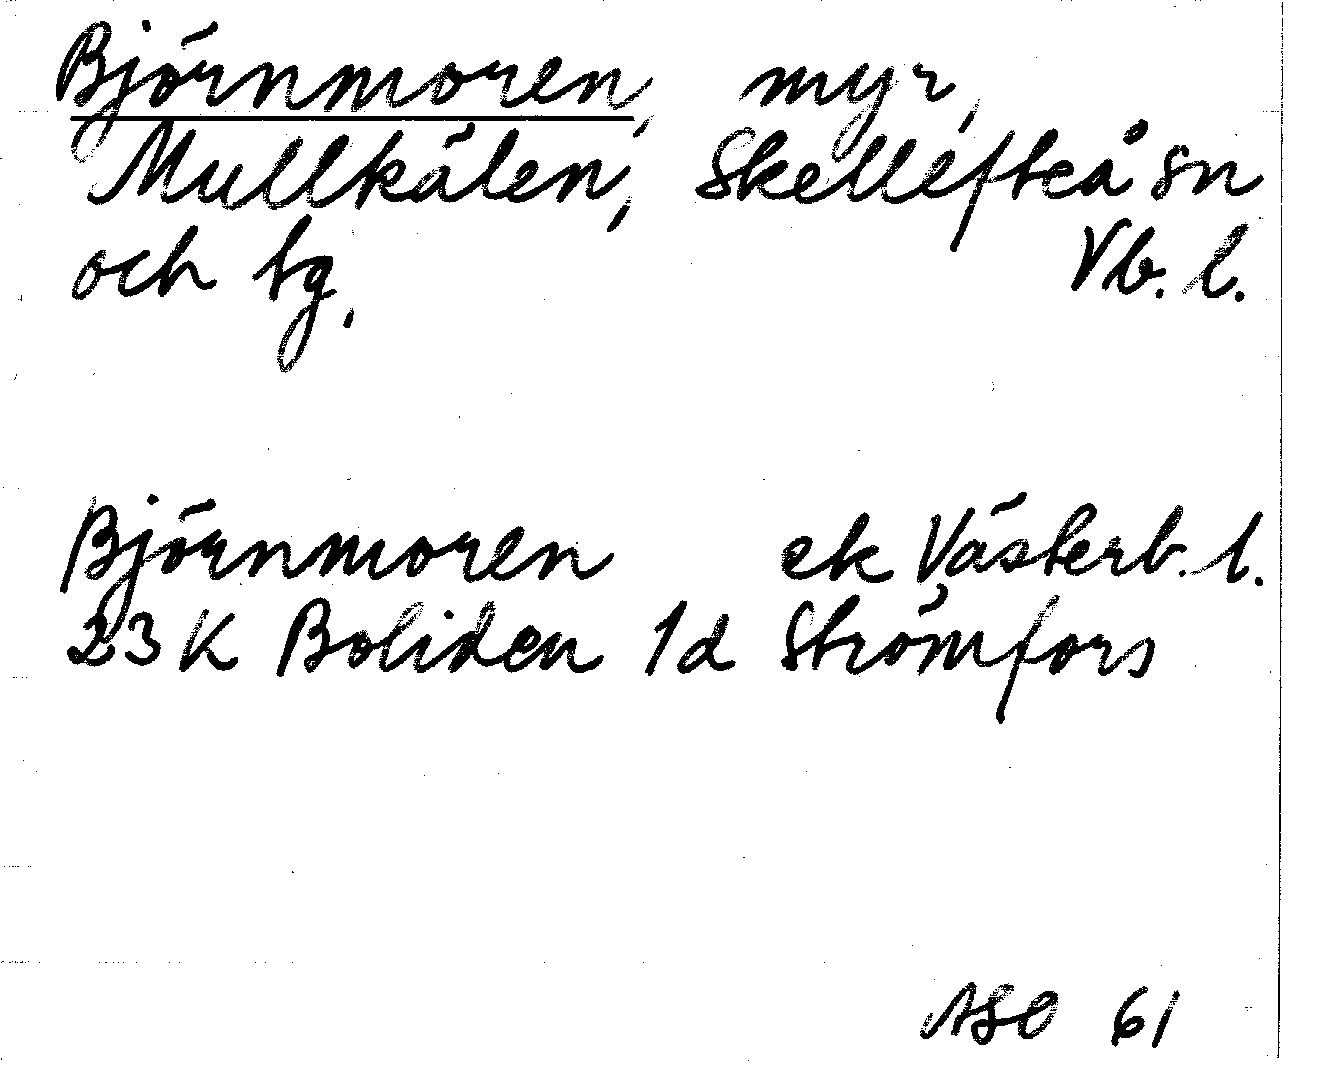 Björnmoren, myr,
Mullkälen, Skellefteå sn
och bg, Vb. l.
Björnmoren ek Västerb. l.
23 K Boliden 1d Strömfors
ASO 61